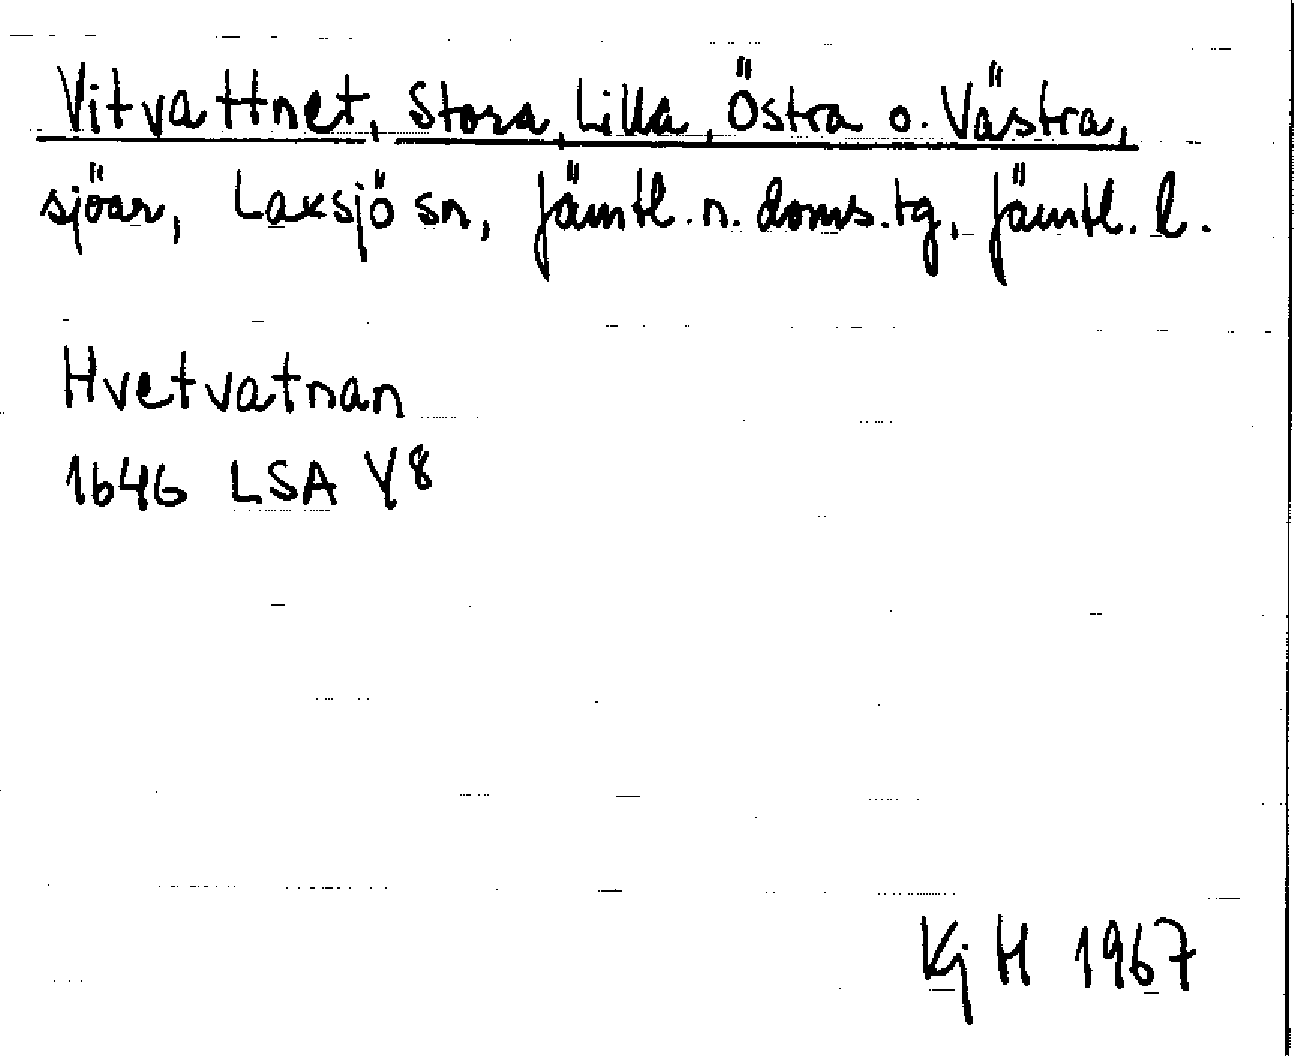 Vitvattnet, Stora, Lilla, Östra o. Västra,
sjöar, Laxsjö sn, Jämtl. n. doms. tg, Jämtl. l.
Hvetvatnan
1646 LSA Y8
Kj H 1967